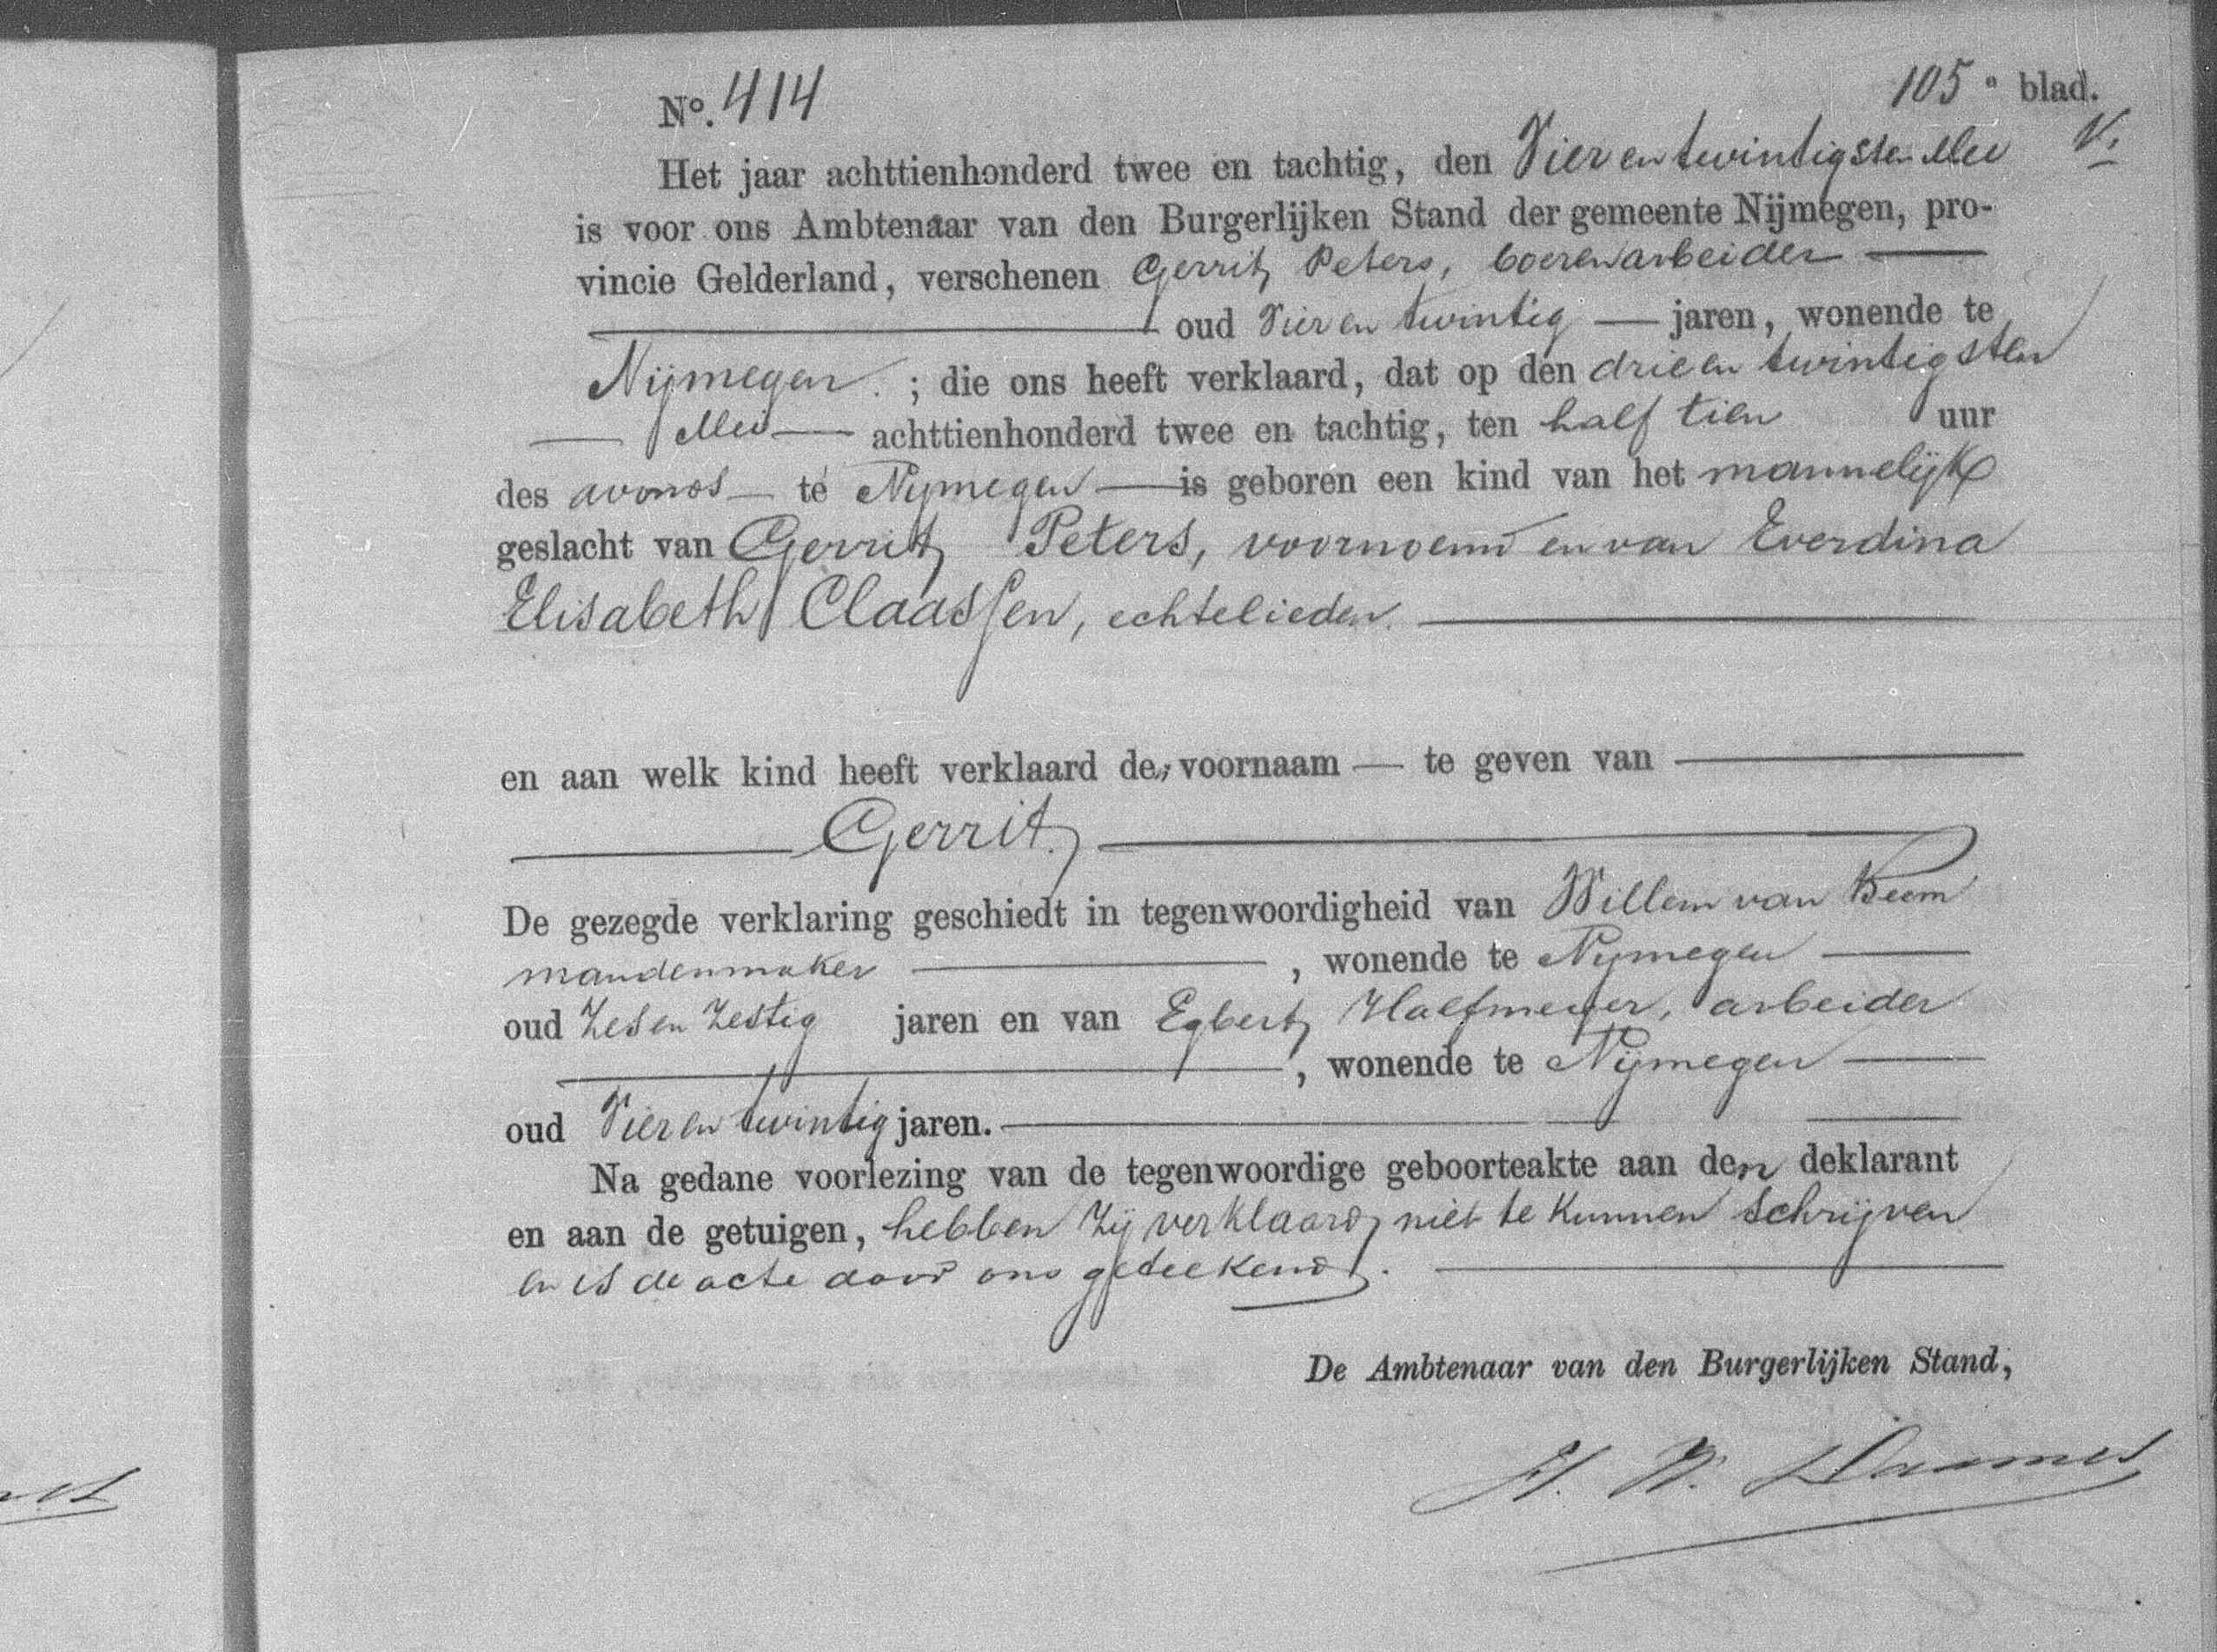 105e blad.
No. 414
V.
Het jaar achttienhonderd twee en tachtig, den Vier en twintigsten Mei
is voor ons Ambtenaar van den Burgerlijken Stand der gemeente Nijmegen, pro-
vincie Gelderland, verschenen Gerrit Peters, boerenarbeider
oud Vier en twintig jaren, wonende te
Nijmegen. ; die ons heeft verklaard, dat op den drie en twintigsten
Mei achttienhonderd twee en tachtig, ten half tien uur
des avonds te Nijmegen is geboren een kind van het mannelijk
geslacht van Gerrit Peters, voornoemd en van Everdina
Elisabeth Claassen, echtelieden.
en aan welk kind heeft verklaard de voornaam te geven van
Gerrit.
De gezegde verklaring geschiedt in tegenwoordigheid van Willem van
mandenmaker , wonende te Nijmegen
oud Zes en Zestig jaren en van Egbert Halfmeijer, arbeider
, wonende te Nijmegen
oud Vier en twintig jaren.
Na gedane voorlezing van de tegenwoordige geboorteakte aan den deklarant
en aan de getuigen, hebben zij verklaard niet te kunnen schrijven
en is de acte door ons geteekend.
De Ambtenaar van den Burgerlijken Stand,